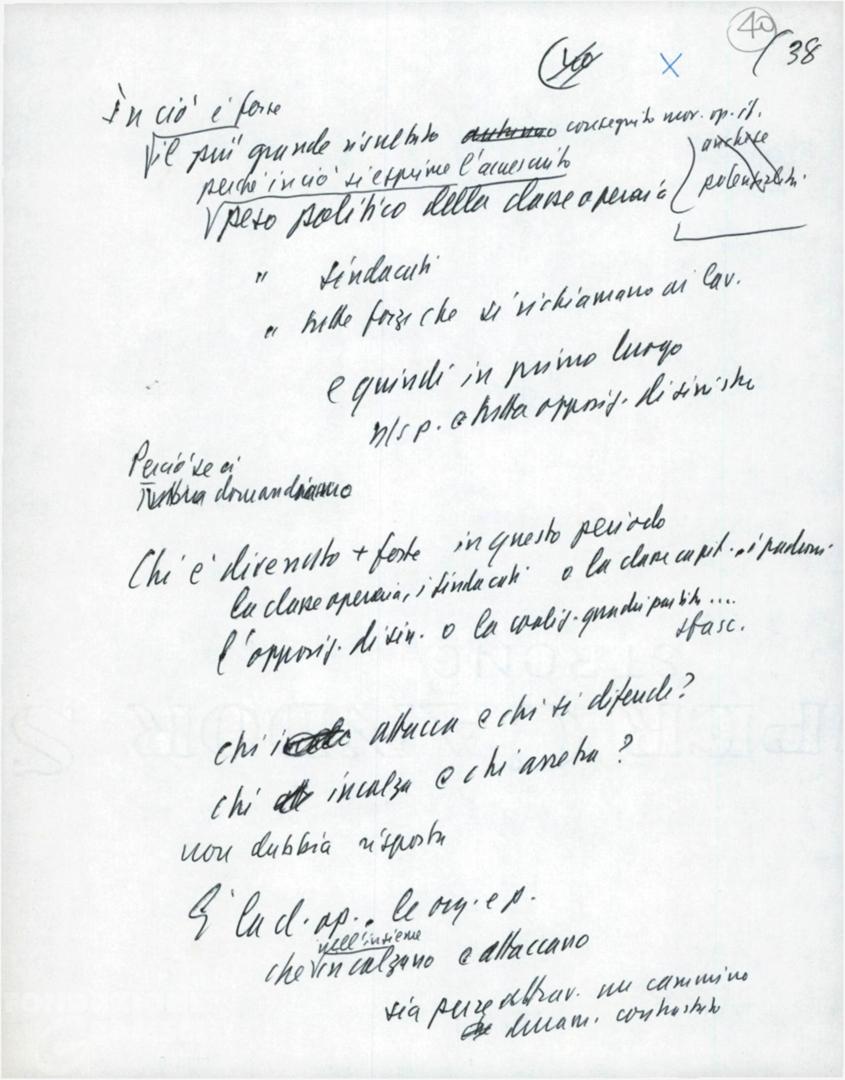 40
38
In ciò è forse
il più grande risultato conseguito mov. op. it.
perché in ciò si esprime l'accresciuto
anche se
potenzialm.
peso politico della classe operaia
" sindacati
" tutte forze che si richiamano ai lav.
e quindi in primo luogo
n/s p. e tutta opposiz. di sinistra
Perciò se ci
domandiamo
Chi è divenuto + forte in questo periodo
la classe operaia, i sindacati o la classe capit. i padroni
l'opposiz. di sin. o la coaliz. quadripartita...
sfasc.
chi attacca e chi si difende?
chi incalza e chi arretra?
non dubbia risposta
E' la cl. op. le org. e p.
nell'insieme
che incalzano e attaccano
sia pure attrav. un cammino
contrastato